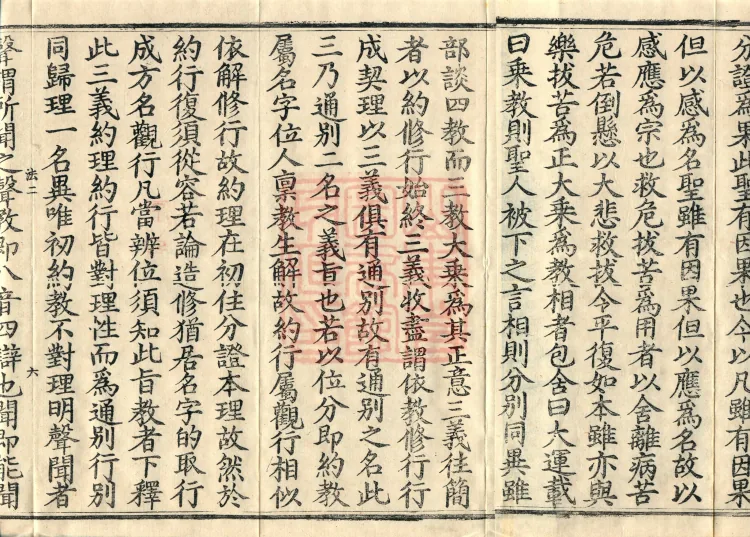 分證爲果此聖有因果也今以凡雖有因果
但以感爲名聖雖有因果但以應爲名故以
感應爲宗也救危拔苦爲用者以舍離病苦
危若倒懸以大悲救拔令平復如本雖亦與
樂拔苦爲正大乘爲教相者包舍曰大運載
曰乘教則聖人被下之言相則分別同異雖
部談四教而三教大乘為其正意三義往簡
者以約修行始終三義收盡謂依教修行行
成契理以三義俱有通別故有通別之名此
三乃通別二名之義旨也若以位分即約教
屬名字位人稟教生解故約行屬觀行相似
依解修行故約理在初住分證本理故然於
約行復須從容若論造修猶居名字的取行
成方名觀行凡當辨位須知此旨教者下釋
此三義約理約行皆對理性而爲通別行別
同歸理一名異唯初約教不對理明聲聞者
法二 六
聲謂所聞之聲教即八音四辯也聞即能聞